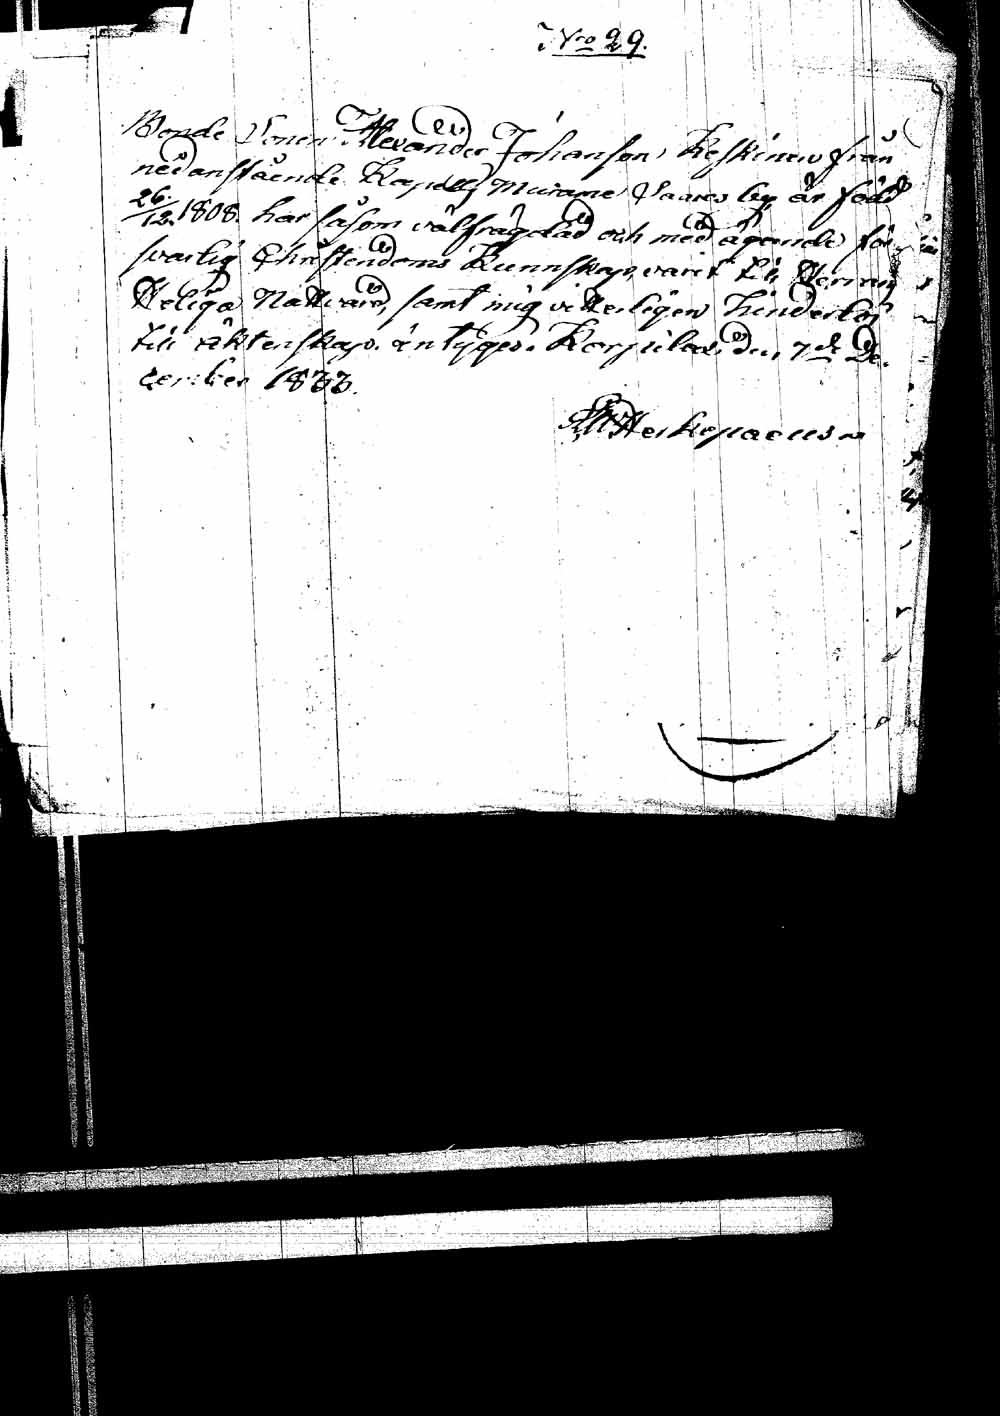 Nro 29.
Bonde Sonen Alexander Johansson Keskinen från
nedanstående Kapells Murame Saares by är född
26/12 1808. har såsom välfrägdad och med ägande för-
svarlig Christendoms Kunnskap, varit till Herrans
Heliga Nattvard, samt mig vitterligen hinderlös
till äktenskap. äntyges. Korpilax den 7de De-
cember 1833.